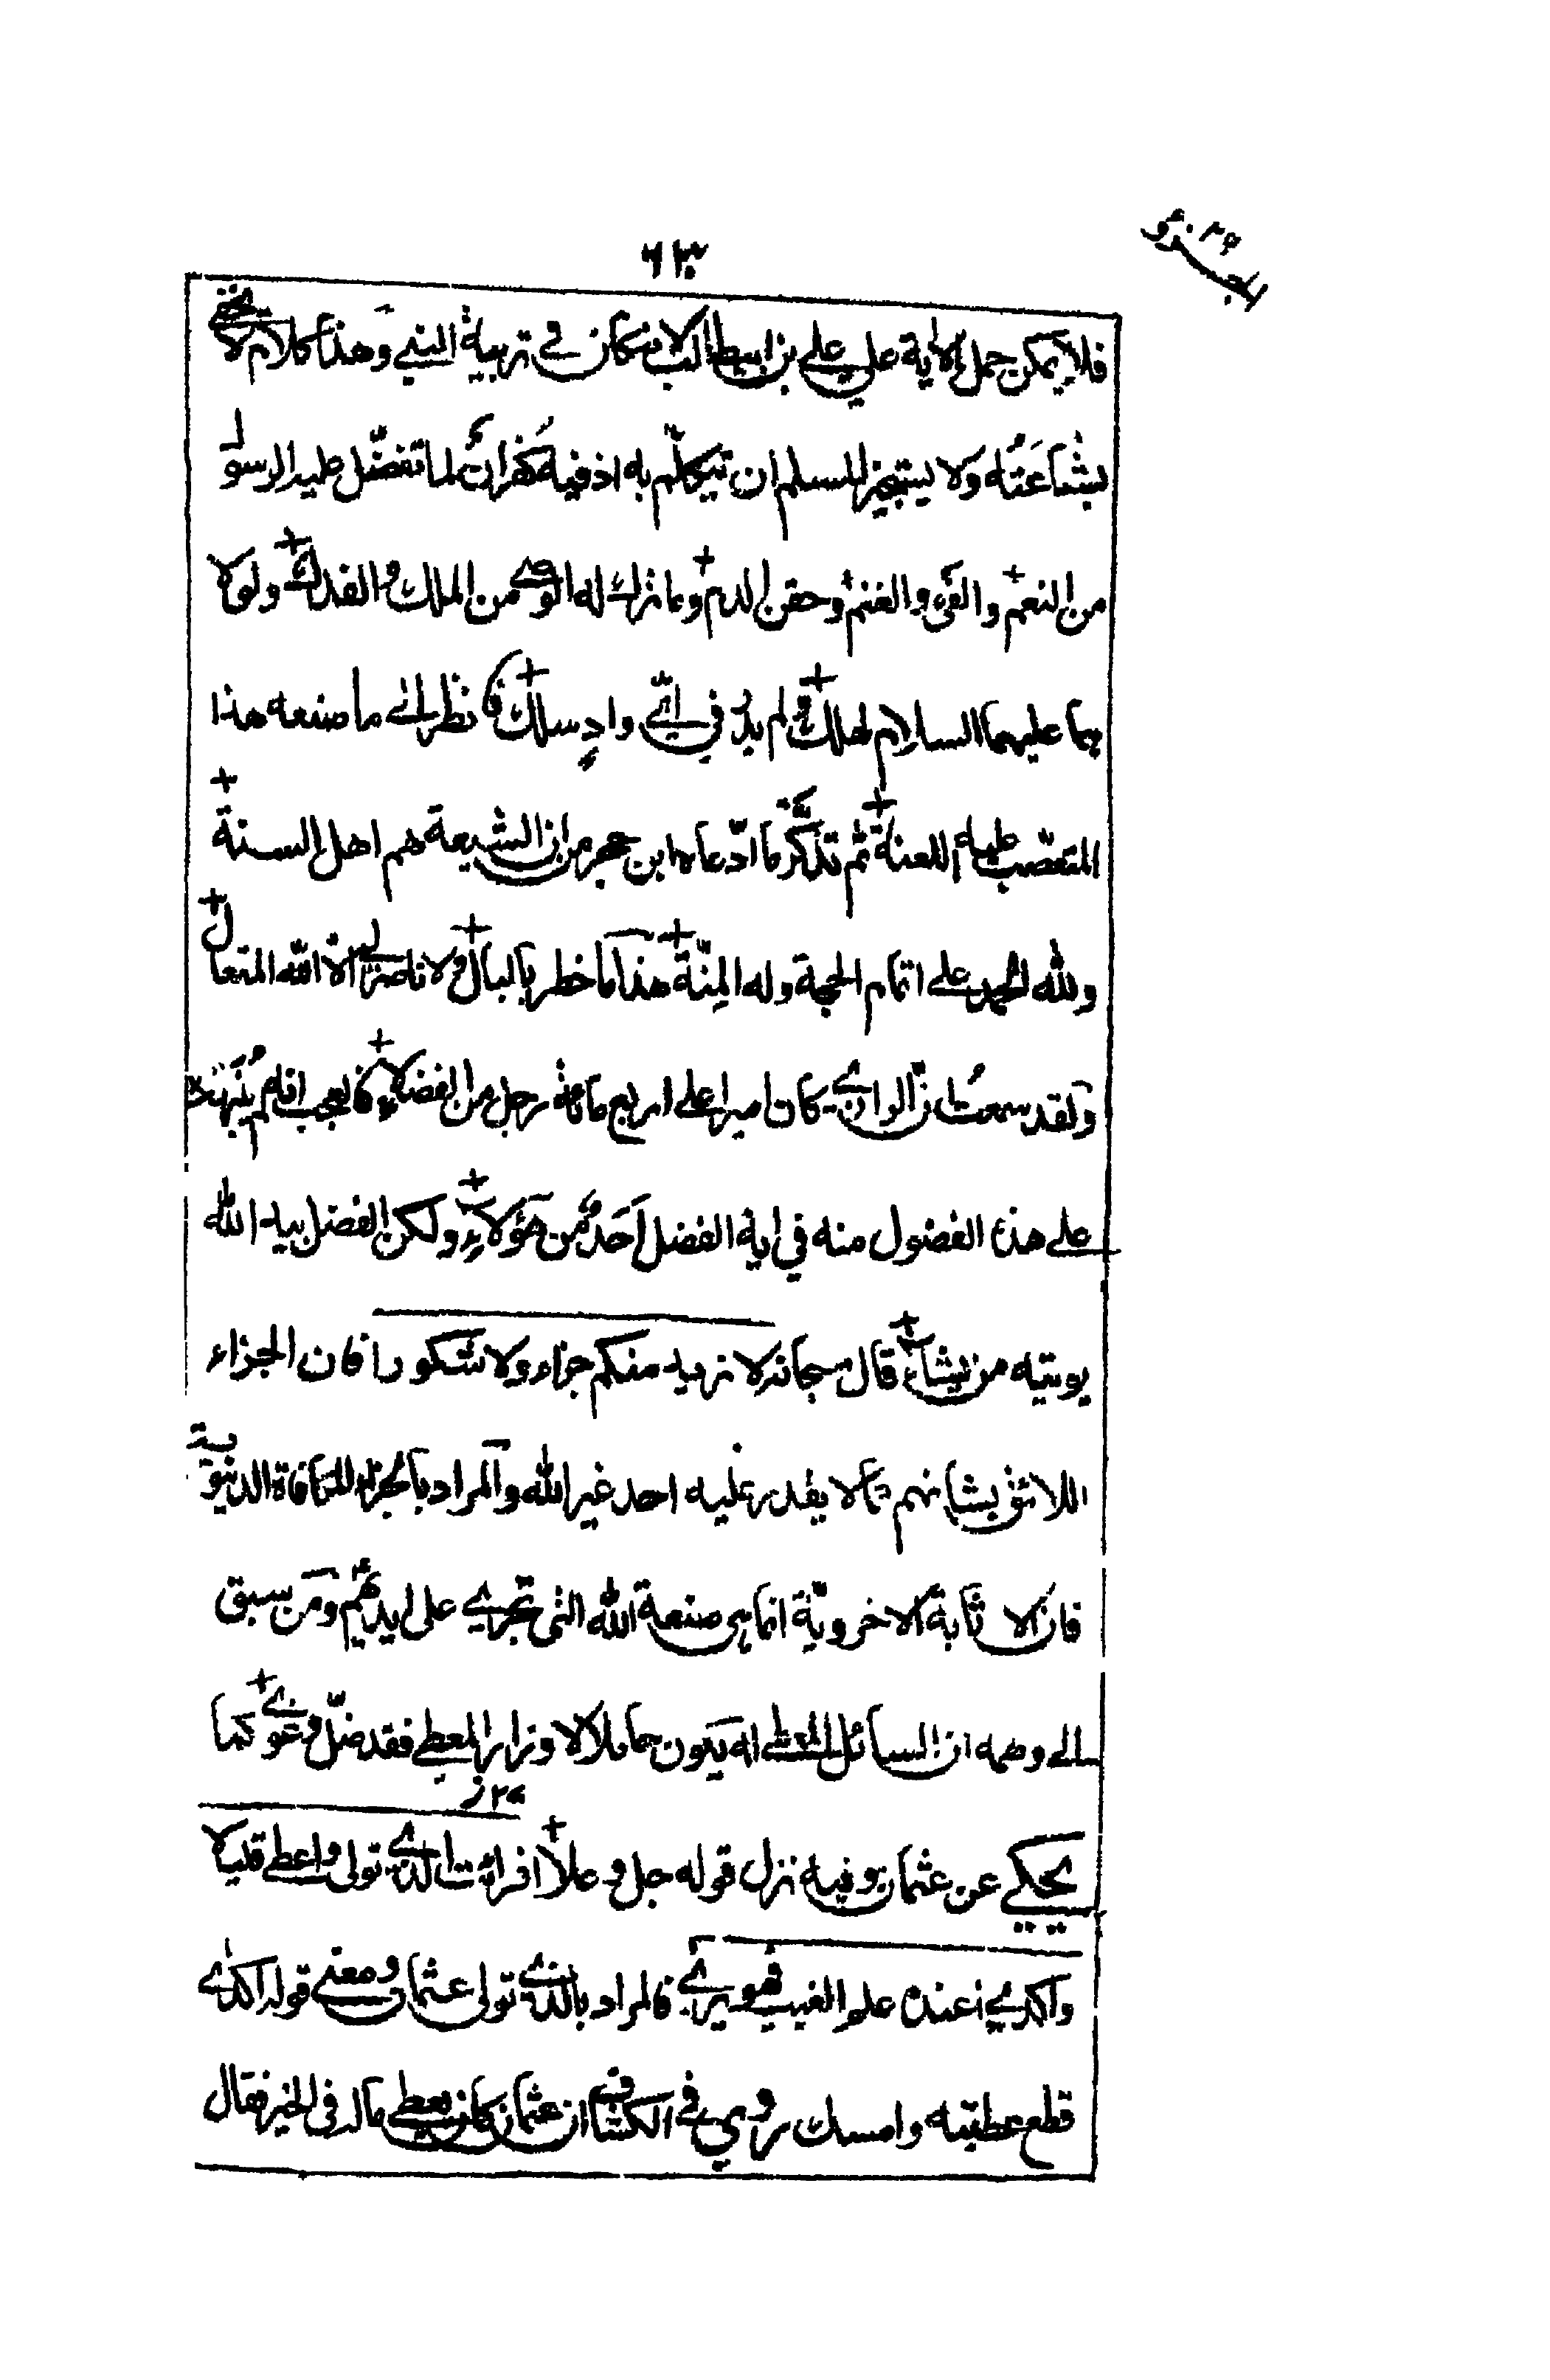 ٦١٣
فلا يمكن حمل الاية على علي بن ابيطالب لانه كان في تربية النبي وهذا كلام لا تخفى
بشاعته ولا يستجيز المسلم ان يتكلم به اذ فيه كفران لما تفضل عليه الرسول
من النعم والفيء والغنم وحقن الدم وما ترك له الوصي من الملك والفدك ولولا
هما عليهما السلام لهلك ولم يدر في اي واد سلك فانظر الى ما صنعه هذا
المتعصب عليه اللعنة ثم تذكر ما ادعاه ابن حجر من ان الشيعة هم اهل السنة
ولله الحمد على اتمام الحجة وله المنة هذا ما خطر بالبال ولا ناصر لي الا الله المتعال
ولقد سمعت ان الرازي كان اميرا على اربع مائة رجل من الفضلاء فالعجب انه لم ينبهه
على هذا الفضول منه في اية الفضل احد من هؤلاء ولكن الفضل بيد الله
يوتيه من يشاء قال سبحانه لا نريد منكم جزاء ولا شكورا فان الجزاء
اللائق بشانهم مما لا يقدر عليه احد غير الله والمراد بالجزاء المكافاة الدنيوية
فان الاثابة الاخروية انما هي صنعة الله التي تجري على ايديهم ومن سبق
الى وهمه ان السائل المعطى له يكون حاملا لاوزار المعطي فقد ضل وغوى كما
يحكى عن عثمان وفيه نزل قوله جل وعلا افرايت الذي تولى واعطى قليلا
واكدى اعنده علم الغيب فهو يرى فالمراد بالذي تولى عثمان ومعنى قوله اكدى
قطع عطيته وامسك روي في الكشاف ان عثمان كان يعطي ماله في الخير فقال